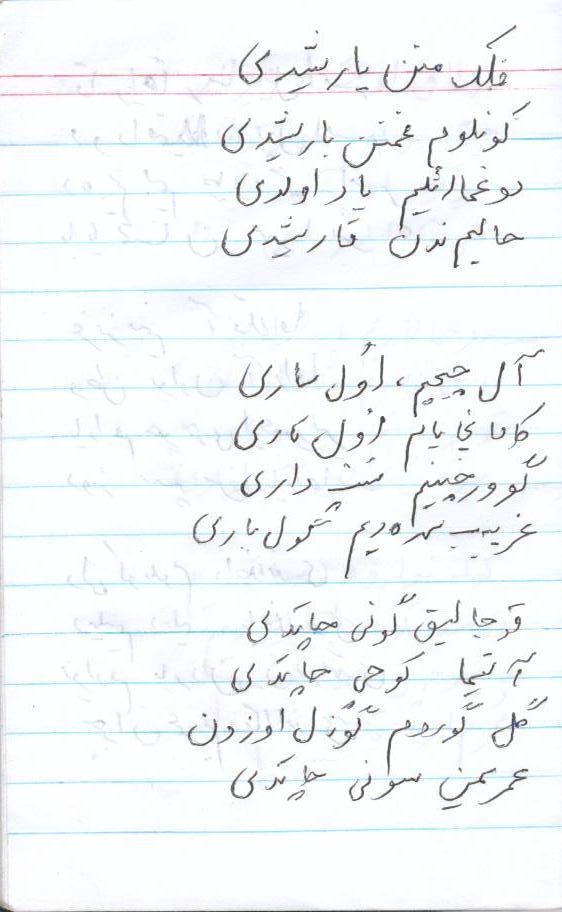 فلک منن یاریشدی
کونلوم غمنن باریشدی
دوغما ائلیم یاد اولدی
حالیم ندن قاریشدی
آل چیچیم، اول ساری
کاماني یایم اول یاری
گوورچینیم داری
غریب شهردیم گول باری
قوجالیق گونی چاتدی
آتیما کوچی چاتدی
گل گوروم گوزل اوزون
عمریمین سونی چاتدی